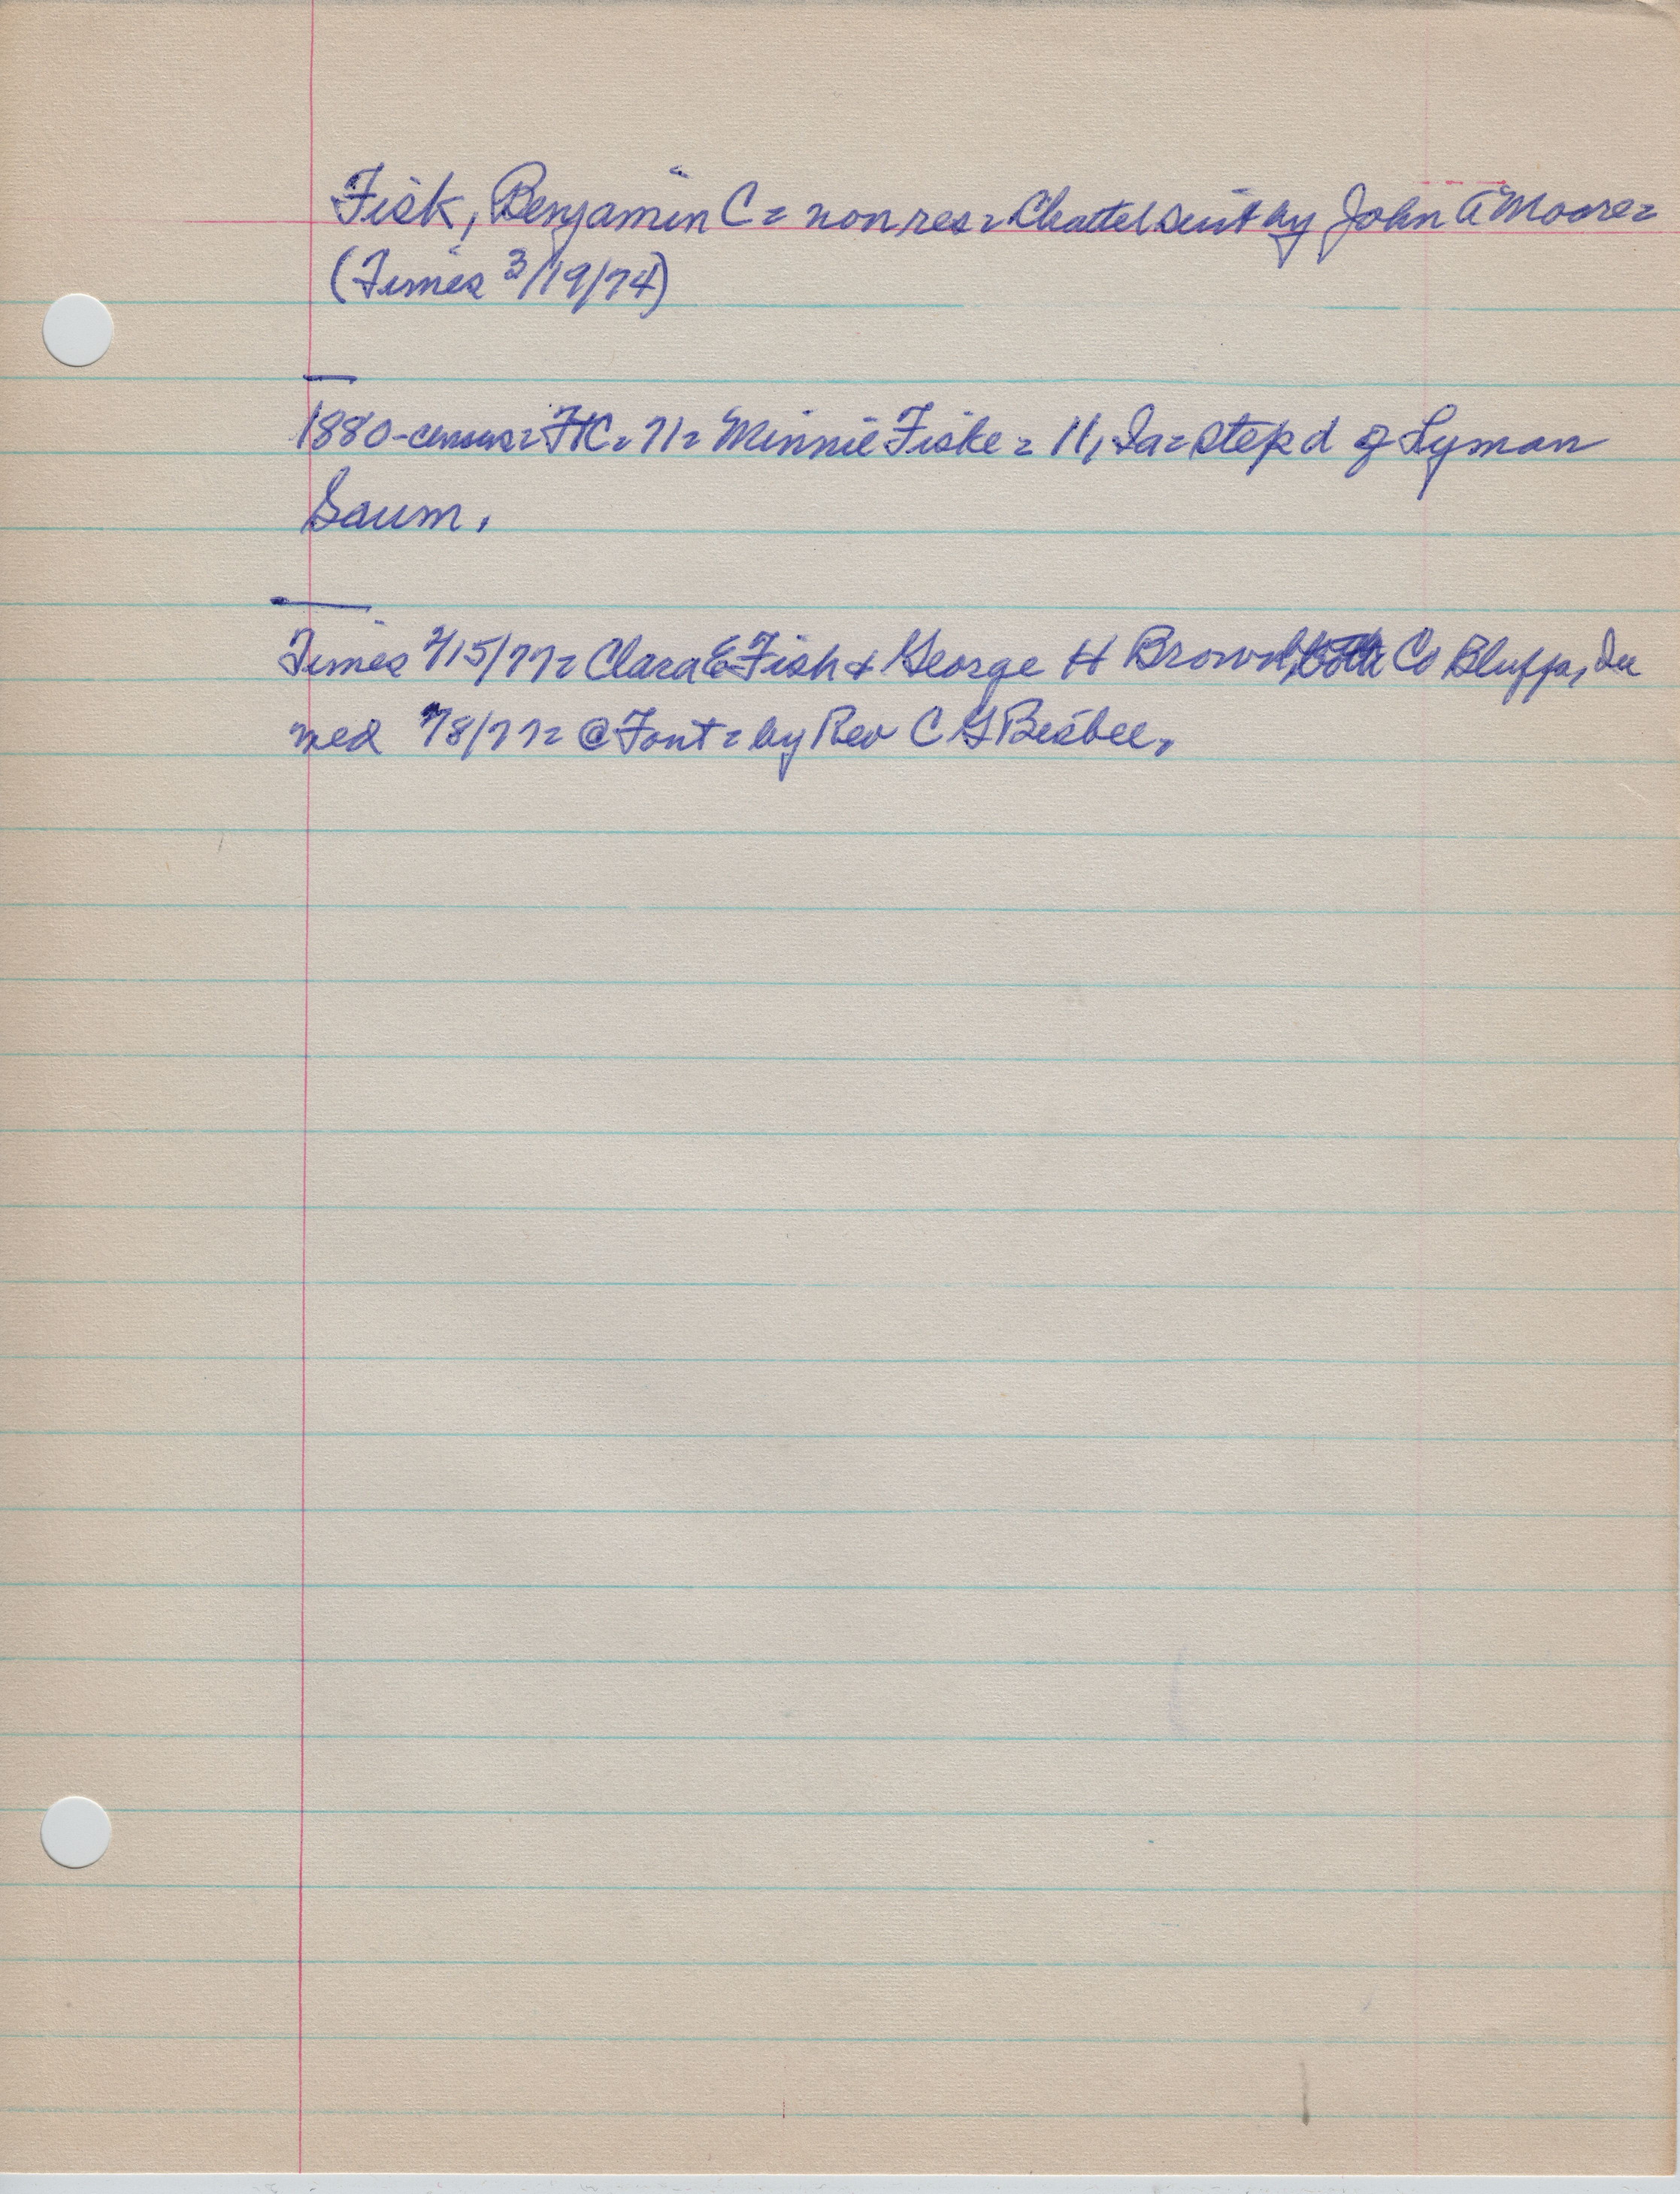 Fisk, Benjamin C = non res = Chattel suit by John A Moore =
(Times 3/19/74)
1880-census = FtC = 71 = Minnie Fiske = 11, Ia = step d of Lyman
Saum.
Times 7/15/77 = Clara E Fish + George H Brown both Co Bluffs, Ia
med 7/8/77 = @ Font = by Rev C G Bisbee,